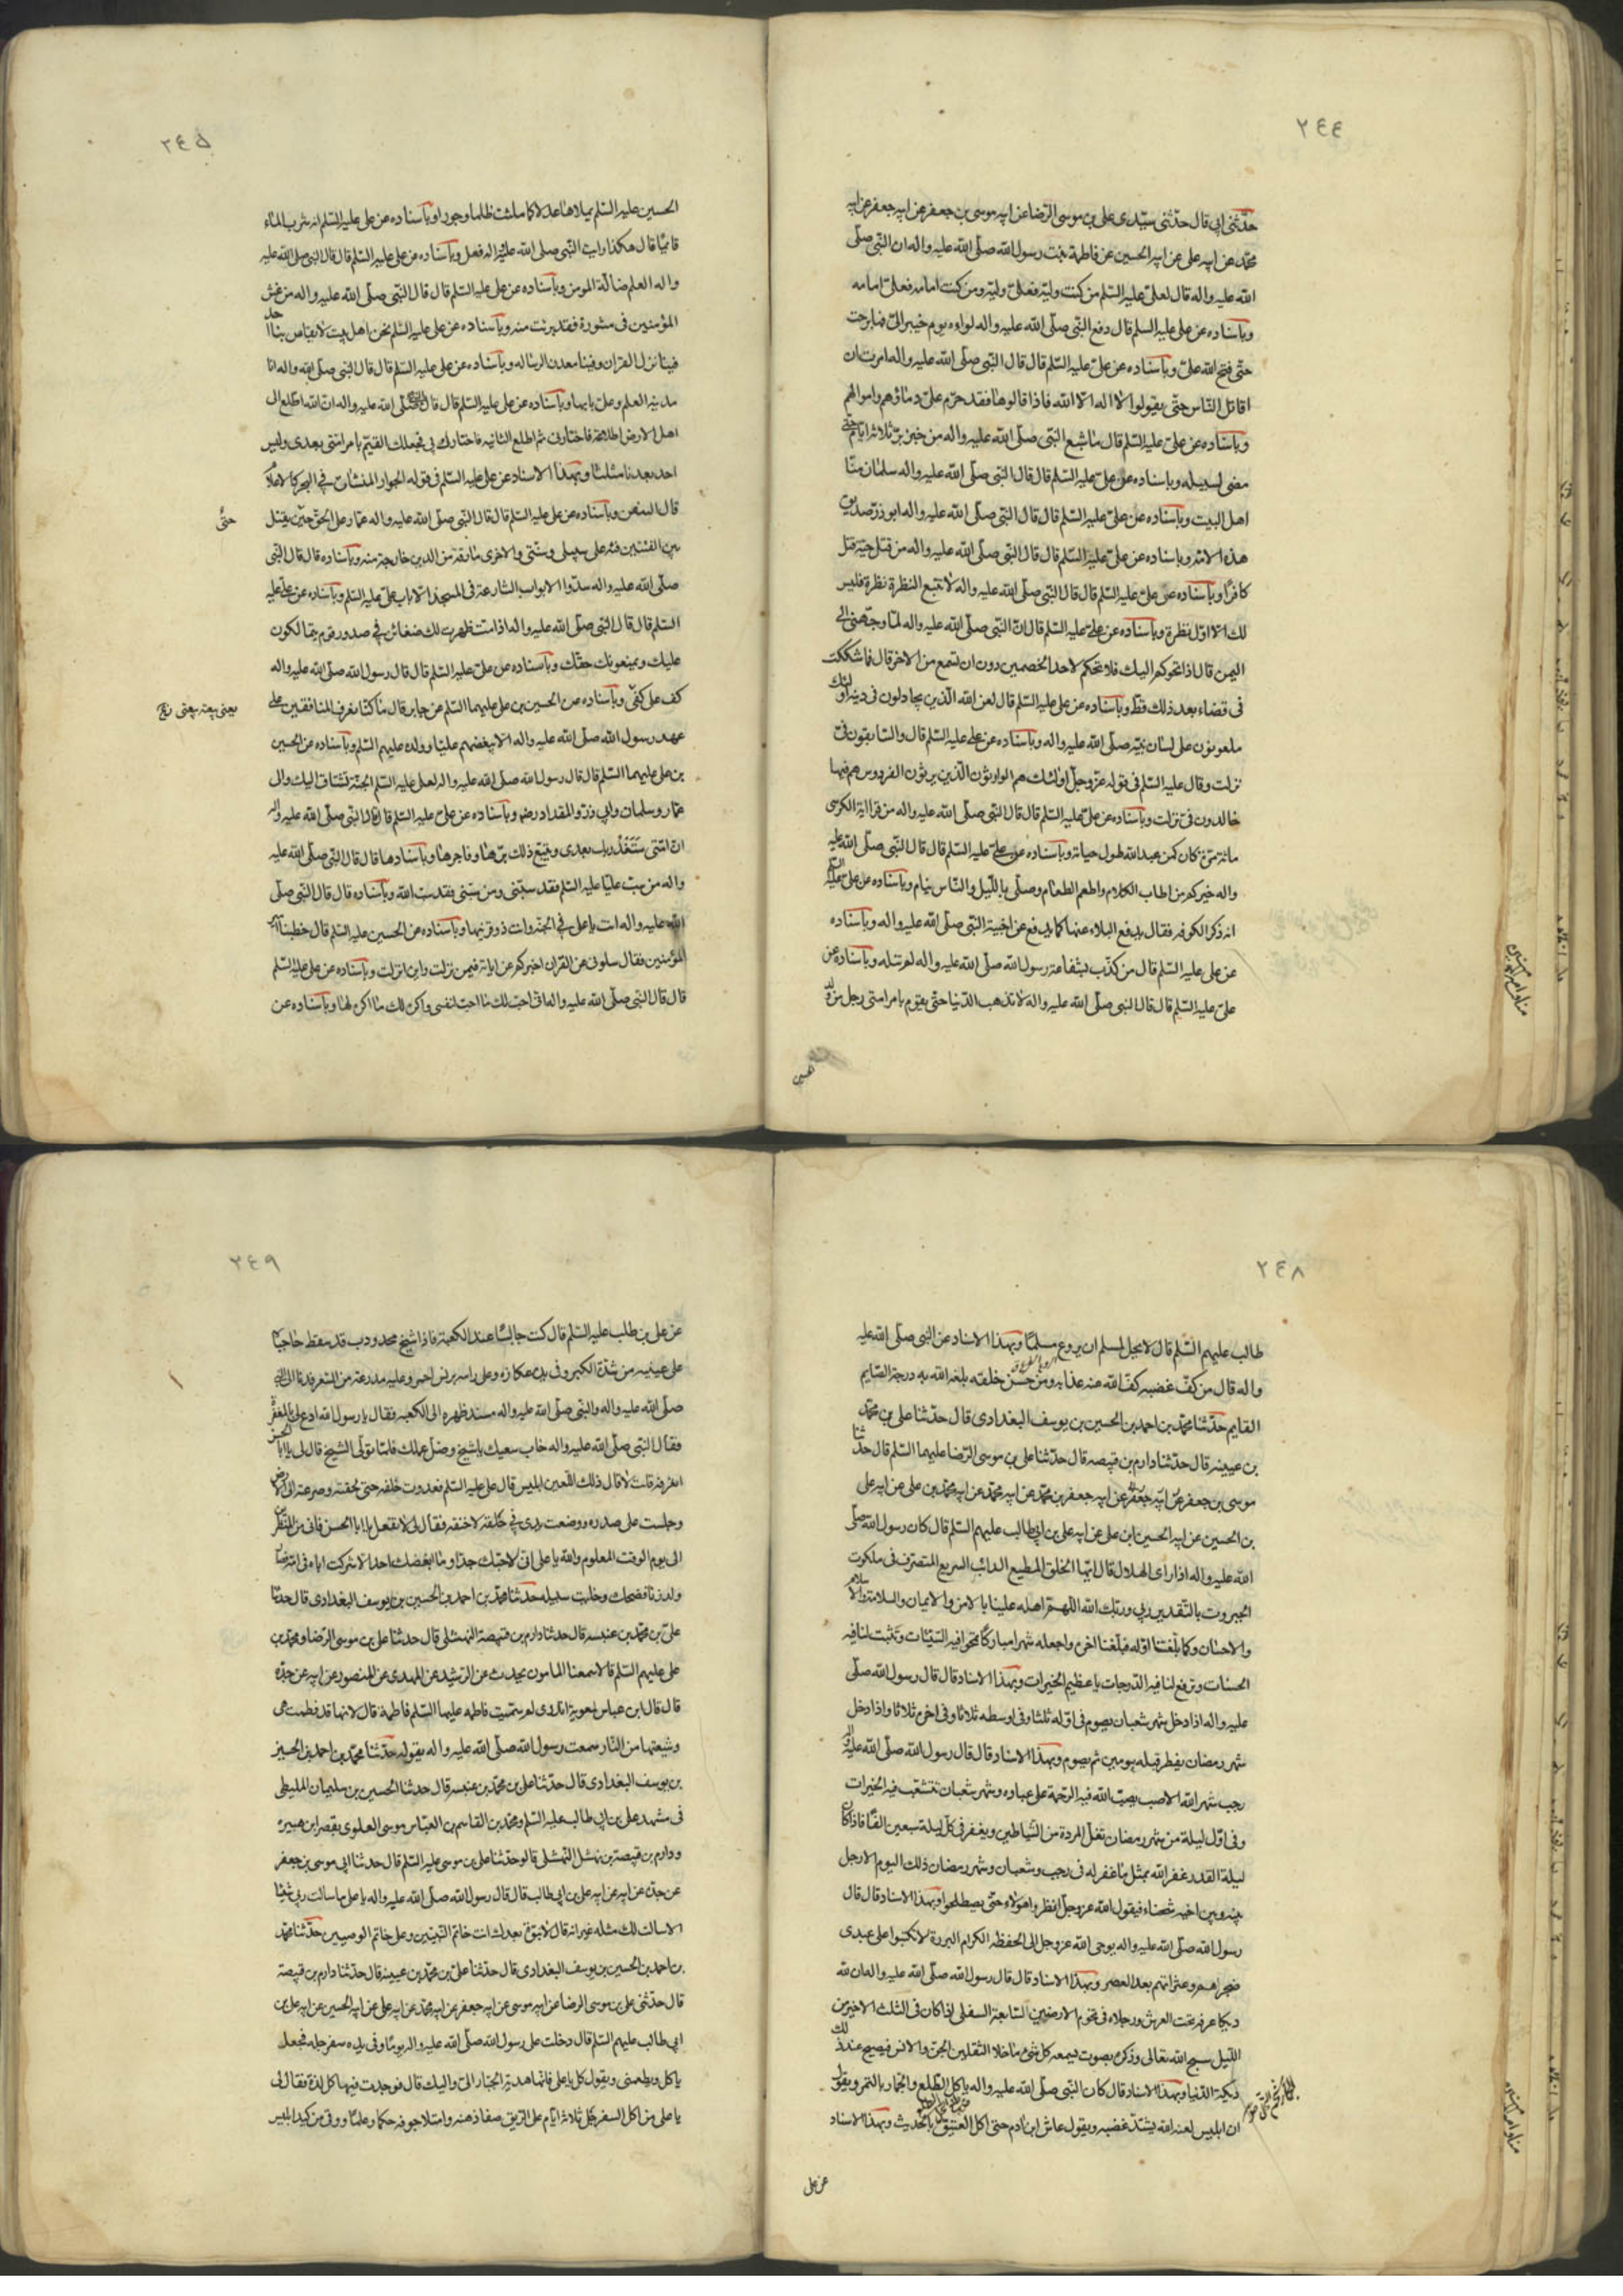 ٢٤٤
حدّثنی ابی قال حدّثنی سیّدی علی بن موسی الرّضا عن ابیه موسی بن جعفر عن ابیه جعفر عن ابیه
محمّد عن ابیه علی عن ابیه الحسین عن فاطمة بنت رسول الله صلّی الله علیه واله ان النّبی صلّی
الله علیه واله قال لعلیّ علیه السّلم من کنت ولیّه فعلیّ ولیّه ومن کنت امامه فعلیّ امامه
وباسناده عن علی علیه السلم قال دفع النّبی صلّی الله علیه واله لواه یوم خیبر الیّ فما برحت
حتّی فتح الله علیّ وباسناده عن علیّ علیه السّلم قال قال النّبی صلّی الله علیه واله امرت ان
اقاتل النّاس حتّی یقولوا لا اله الّا الله فاذا قالوها فقد حرّم علیّ دماؤهم واموالهم
وباسناده عن علیّ علیه السّلم قال ما شبع النّبی صلّی الله علیه واله من خبز برّ ثلاثة ایّام حتّی
مضی لسبیله وباسناده عن علیّ علیه السّلم قال قال النّبی صلّی الله علیه واله سلمان منّا
اهل البیت وباسناده عن علیّ علیه السّلم قال قال النّبی صلّی الله علیه واله ابوذرّ صدیق
هذه الامّة وباسناده عن علیّ علیه السّلم قال قال النّبی صلّی الله علیه واله من قتل حیّة قتل
کافرًا وباسناده عن علیّ علیه السّلم قال قال النّبی صلّی الله علیه واله لا تتبع النظرة نظرة فلیس
لك الّا اوّل نظرة وباسناده عن علیّ علیه السّلم قال انّ النّبی صلّی الله علیه واله لمّا وجّهنی الی
الیمن قال اذا تحوکم الیك فلا تحکم لاحد الخصمین دون ان تسمع من الاخر قال فما شککت
فی قضاء بعد ذلك وباسناده عن علی علیه السّلم قال لعن الله الّذین یجادلون فی دینه اولئك
ملعونون علی لسان نبیّه صلّی الله علیه واله وباسناده عن علی علیه السّلم قال والسابقون فیّ
نزلت وقال علیه السّلم فی قوله عزّ وجلّ اولئك هم الوارثون الّذین یرثون الفردوس هم فیها
خالدون فیّ نزلت وباسناده عن علیّ علیه السّلم قال قال النّبی صلّی الله علیه واله من قرا ایة الکرسی
مائة مرّة کان کمن عبد الله طول حیاته وباسناده عن علیّ علیه السّلم قال قال النّبی صلّی الله علیه
واله خیرکم من اطاب الکلام واطعم الطعام وصلّی باللّیل والنّاس نیام وباسناده عن علیّ علیه السلم
انه ذکر الکوفه فقال یدفع البلاء عنها کما یدفع عن اخبیة النّبی صلّی الله علیه واله وباسناده
عن علی علیه السّلم قال من کذّب بشفاعة رسول الله صلّی الله علیه واله لم تنله وباسناده عن
علیّ علیه السّلم قال قال النبی صلّی الله علیه واله لا تذهب الدّنیا حتّی یقوم بامر امتی رجل من ولد
٢٤٥
الحسین علیه السّلم یملاها عدلا کما ملئت ظلما وجورا وباسناده عن علی علیه السّلم انه شرب الماء
قائمًا قال هکذا رایت النّبی صلی الله علیه واله فعل وباسناده عن علی علیه السّلم قال قال النبی صلی الله علیه
واله العلم ضالّة المومن وباسناده عن علی علیه السّلم قال قال النّبی صلّی الله علیه واله من غش
المؤمنین فی مشورة فقد برئت منه وباسناده عن علی علیه السّلم نحن اهل بیت لا یقاس بنا احد
فینا نزل القران وفینا معدن الرساله وباسناده عن علی علیه السّلم قال قال النّبی صلّی الله واله انا
مدینه العلم وعلی بابها وباسناده عن علی علیه السّلم قال قال النبی صلّی الله علیه واله انّ الله اطّلع الی
اهل الارض اطلاعة فاختارنی ثم اطلع الثانیه فاختارك بی فجعلك القیّم بامر امتی بعدی ولیس
احد بعدنا مثلنا وبهذا الاسناد عن علی علیه السّلم فی قوله الجوار المنشات فی البحر کالاعلام
قال السفن وباسناده عن علی علیه السّلم قال قال النّبی صلّی الله علیه واله عمّار علی الحقّ حین یقتل
حتّی
بین الفئتین فئه علی سبیلی وسنّتی والاخری مارقة من الدین خارجة منه وباسناده قال قال النّبی
صلّی الله علیه واله سدّوا الابواب الشارعة فی المسجد الّا باب علیّ علیه السّلم وباسناده عن علیّ علیه
السّلم قال قال النّبی صلّی الله علیه واله اذا متّ ظهرت لك ضغائن فی صدور قوم یتمالئون
علیك ویمنعونك حقّك وباسناده عن علیّ علیه السّلم قال قال رسول الله صلّی الله علیه واله
کف علی کفّی وباسناده عن الحسین بن علی علیهما السّلم عن جابر قال ما کنّا نعرف المنافقین علی
عهد رسول الله صلّی الله علیه واله الا ببغضهم علیّا وولده علیهم السّلم وباسناده عن الحسین
بن علی علیهما السّلم قال قال رسول الله صلّی الله علیه واله لعلی علیه السّلم الجنّة تشتاق الیك والی
عمّار وسلمان وابی ذرّ والمقداد رض وباسناده عن علیّ علیه السّلم قال قال النّبی صلّی الله علیه واله
انّ امّتی ستغدر بك بعدی ویتبع ذلك برّها وفاجرها وباسنادها قال قال النّبی صلّی الله علیه
واله من سبّ علیّا علیه السّلم فقد سبّنی ومن سبّنی فقد سبّ الله وباسناده قال قال النّبی صلّی
الله علیه واله انت یا علی فی الجنّة وانت ذو قرنیها وباسناده عن الحسین علیه السّلم قال خطبنا امیر
المؤمنین فقال سلونی عن القران اخبرکم عن ایاته فیمن نزلت واین انزلت وباسناده عن علی علیه السّلم
قال قال النّبی صلّی الله علیه واله انّی احبّ لك ما احبّ لنفسی واکره لك ما اکره لها وباسناده عن
٢٤٨
طالب علیهم السّلم قال لا یحل لمسلم ان یروع مسلمًا وبهذا الاسناد عن النّبی صلّی الله علیه
واله قال من کفّ غضبه کفّ الله عنه عذابه ومن حسّن خلقه بلغه الله به درجة الصّایم
القایم حدّثنا محمّد بن احمد بن الحسین بن یوسف البغدادی قال حدّثنا علی بن محمّد
بن عیینه قال حدّثنا دارم بن قبیصه قال حدّثنا علی بن موسی الرّضا علیهما السّلم قال حدّثنا
موسی بن جعفر عن ابیه جعفر بن محمّد عن ابیه محمّد بن علی عن ابیه علی
بن الحسین عن ابیه الحسین ابن علی عن ابیه علی بن ابی طالب علیهم السّلم قال کان رسول الله صلّی
الله علیه واله اذا رای الهلال قال ایّها الخلق المطیع الدائب السریع المتصرّف فی ملکوت
الجبروت بالتّقدیر ربّی وربّك الله اللّهمّ اهله علینا بالامن والایمان والسلامة والاسلام
والاحسان وکما بلّغتنا اوّله فبلّغنا اخره واجعله شهرا مبارکًا تمحو فیه السّیّئات وتثبت لنا فیه
الحسنات وترفع لنا فیه الدّرجات یا عظیم الخیرات وبهذا الاسناد قال قال رسول الله صلّی
علیه واله اذا دخل شهر شعبان یصوم فی اوّله ثلثا وفی اوسطه ثلاثا وفی اخره ثلاثا واذا دخل
شهر رمضان یفطر قبله یومین ثم یصوم وبهذا الاسناد قال قال رسول الله صلّی الله علیه واله
رجب شهر الله الاصب یصبّ الله فیه الرّحمة علی عباده وشهر شعبان تتشعّب فیه الخیرات
وفی اوّل لیلة من شهر رمضان تغلّ المردة من الشّیاطین ویغفر فی کلّ لیلة سبعین الفًا فاذا کان
لیلة القدر غفر الله بمثل ما غفر له فی رجب وشعبان وشهر رمضان ذلك الیوم الا رجل
بینه وبین اخیه شحناء فیقول الله عزّ وجلّ انظروا هؤلاء حتّی یصطلحوا وبهذا الاسناد قال قال
رسول الله صلّی الله علیه واله یوحی الله عز وجل الی الحفظة الکرام البررة لا تکتبوا علی عبدی
ضجراهم وعثراتهم بعد العصر وبهذا الاسناد قال قال رسول الله صلّی الله علیه واله ان لله
دیکا عرفه تحت العرش ورجلاه فی تخوم الارضین السّابعة السفلی اذا کان فی الثلث الاخیر من
اللّیل سبح الله تعالی وذکره بصوت یسمعه کل شیء ما خلا الثقلین الجنّ والانس فیصیح عند ذلك
دیکة الدّنیا وبهذا الاسناد قال کان النّبی صلّی الله علیه واله یاکل الطّلع والجمّار بالتمر ویقول
ان ابلیس لعنه الله یشتدّ غضبه ویقول عاش ابن ادم حتی اکل العتیق بالحدیث وبهذا الاسناد
عن علی
٢٤٩
عن علی بن طلب علیه السّلم قال کنت جالسًا عند الکعبة فاذا شیخ محدودب قد سقط حاجباه
علی عینیه من شدّة الکبر وفی یده عکازة وعلی راسه برنس احمر وعلیه مدرعة من الشعر فدنا الی النّبی
صلّی الله علیه واله والنّبی صلّی الله علیه واله مسند ظهره الی الکعبه فقال یا رسول الله ادع لی بالمغفرة
فقال النّبی صلّی الله علیه واله خاب سعیك یا شیخ وضلّ عملك فلمّا تولّی الشّیخ قال لی یا ابا الحسن
اتعرفه قلت لا قال ذلك اللّعین ابلیس قال علی علیه السّلم فعدوت خلفه حتی لحقته وصرعته الی الارض
وجلست علی صدره ووضعت یدی فی حلقه لاخنقه فقال لی لا تفعل یا ابا الحسن فانی من المنظرین
الی یوم الوقت المعلوم والله یا علی انّی لاحبّك جدّا وما ابغضك احد الا شرکت اباه فی امّه فصار
ولد زنا فضحکت وخلیت سبیله حدّثنا محمّد بن احمد بن الحسین بن یوسف البغدادی قال حدثنا
علیّ بن محمّد بن عنبسه قال حدثنا دارم بن قبیصة النهشلی قال حدثنا علی بن موسی الرّضا ومحمّد بن
علی علیهم السّلم قالا سمعنا المامون یحدث عن الرّشید عن المهدی عن المنصور عن ابیه عن جدّه
قال قال ابن عباس لمعویة اتدری لم سمّیت فاطمه علیها السّلم فاطمة قال لانها قد فطمت هی
وشیعتها من النّار سمعت رسول الله صلّی الله علیه واله یقوله حدّثنا محمّد بن احمد بن الحسین
بن یوسف البغدادی قال حدّثنا علی بن محمّد بن عنبسه قال حدثنا الحسین بن سلیمان الملیطی
فی مشهد علی بن ابی طالب علیه السّلم ومحمّد بن القاسم بن العبّاس موسی العلوی بقصر ابن هبیره
ودارم بن قبیصة بن نهشل النّهشلی قالو حدّثنا علی بن موسی علیه السّلم قال حدثنا ابی موسی بن جعفر
عن جدّه عن ابیه عن ابیه علی بن ابی طالب قال قال رسول الله صلّی الله علیه واله یا علی ما سالت ربی شیئا
الا سالت لك مثله غیر انه قال لا نبوّة بعدك انت خاتم النّبیّین وعلی خاتم الوصیین حدّثنا محمّد
بن احمد بن الحسین بن یوسف البغدادی قال حدّثنا علیّ بن محمّد بن عیینه قال حدّثنا دارم بن قبیصة
قال حدّثنی علی بن موسی الرضا عن ابیه موسی عن ابیه جعفر عن ابیه محمّد عن ابیه علی عن ابیه الحسین عن ابیه علی بن
ابی طالب علیهم السّلم قال دخلت علی رسول الله صلّی الله علیه واله یومًا وفی یده سفرجله فجعل
یاکل ویطعمنی ویقول کل یا علی فانّها هدیة الجبّار الیّ والیك قال فوجدت فیها کل لذّة فقال لی
یا علی من اکل السفرجل ثلاثة ایّام علی الرّیق صفا ذهنه وامتلا جوفه حکما وعلمًا ووقی من کید ابلیس